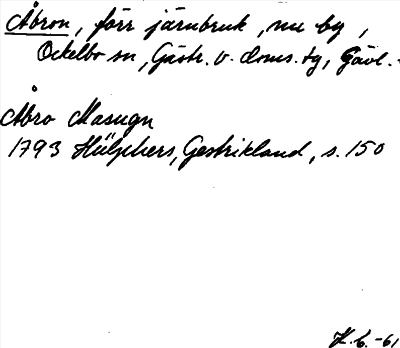 Åbron, förr järnbruk, nu by,
Ockelbo sn, Gästr. v. doms. tg, Gävl.
Åbro Masugn
1793 Hülphers, Gestrikland, s. 150
K. L. -61